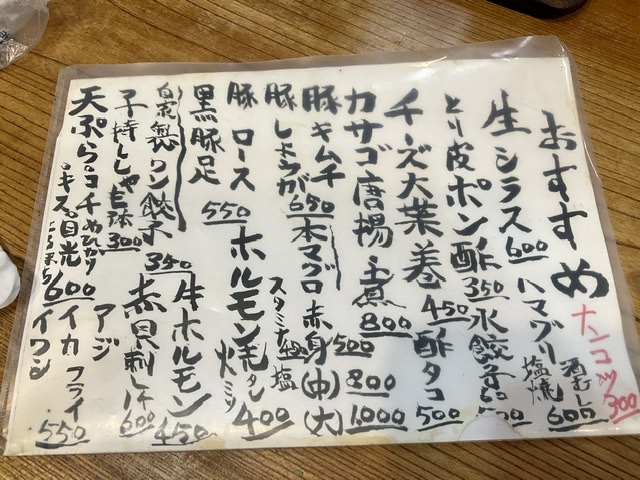 おすすめ
ナンコツ 300
生シラス 600
ハマグリ 酒むし 塩焼 600
とり皮ポン酢 350
水餃子
チーズ大葉巻 450
酢タコ 500
カサゴ唐揚 800
本マグロ 赤身 500 (中) 800 (大) 1000
豚キムチ 650
豚しょうが
豚ロース 550
ホルモン焼 タレ 塩 400
黒豚足
牛ホルモン 450
自家製ワン餃子 350
赤貝刺し 600
子持ししゃも 300
天ぷら コチ めひかり キス 目光 600
アジ
イカ フライ 550
イワシ